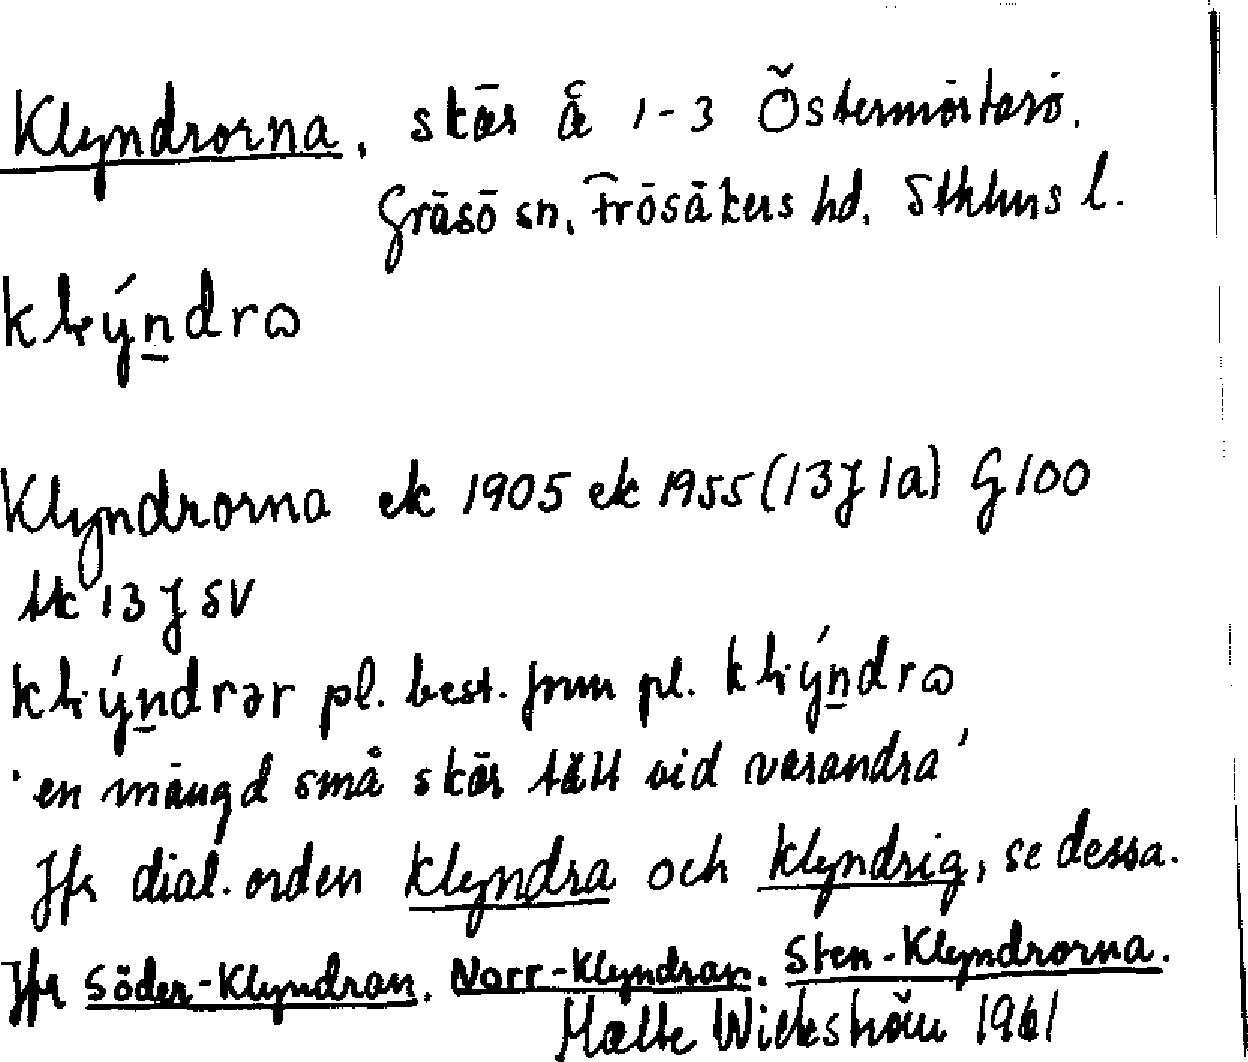 Klyndrorna, skär å 1-3 Östermörtarö.
Gräsö sn, Frösåkers hd, Sthlms l.
Klyndrorna ek 1905 ek 1955 (13J 1a) G 100
tk 13 J SV
pl. best. form pl.
'en mängd små skär tätt vid varandra'
Jfr dial. orden klyndra och klyndrig, se dessa.
Jfr Söder-Klyndran, Norr-Klyndran, Sten-Klyndrorna.
Malte Wickström 1961